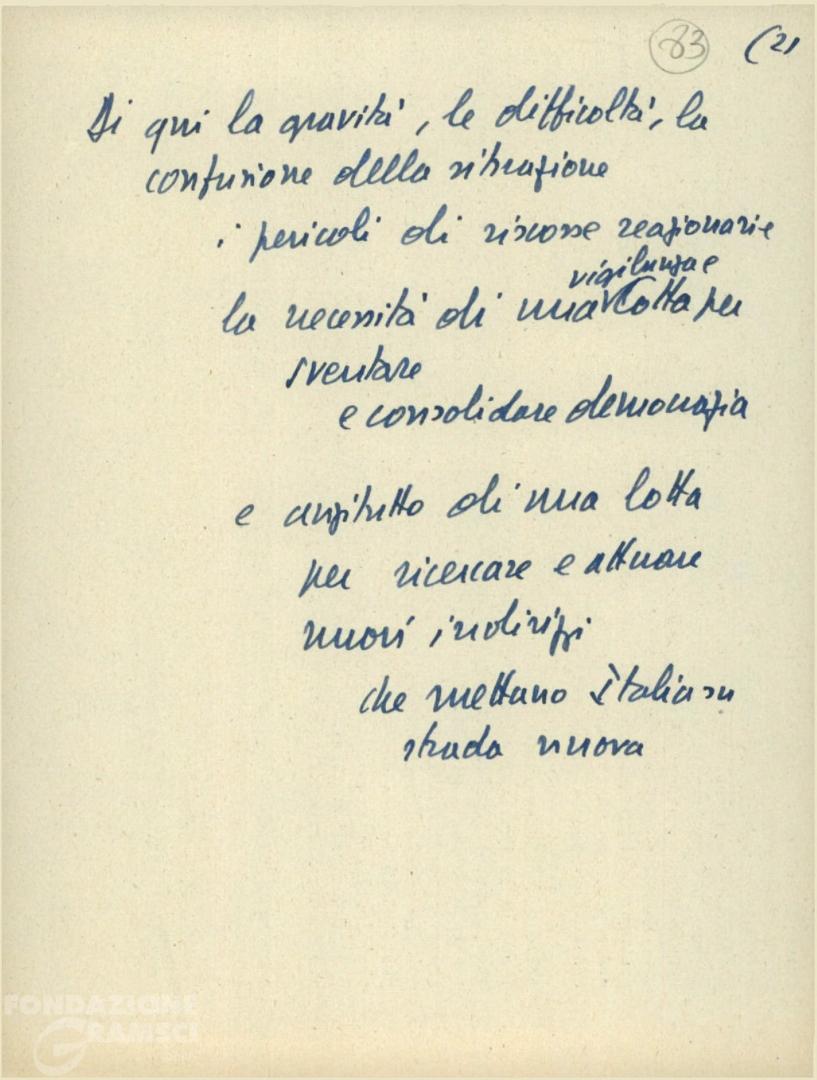 83 (21
Di qui la gravità, le difficoltà, la
confusione della situazione
i pericoli di riscosse reazionarie
vigilanza e
la necessità di una lotta per
sventare
e consolidare democrazia
e anzitutto di una lotta
per ricercare e attuare
nuovi indirizzi
che mettano Italia su
strada nuova
FONDAZIONE
GRAMSCI